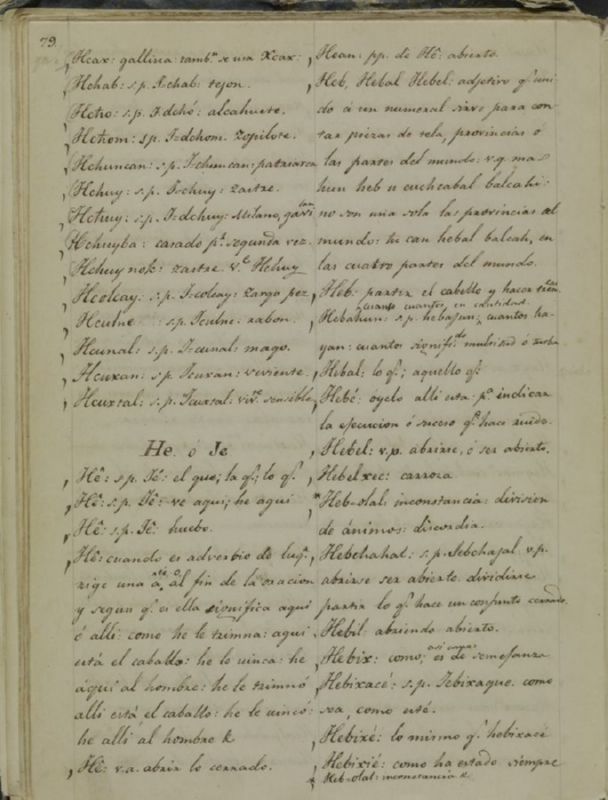 79.
Hcax: gallina: tamb.n se usa Xcax:
Hchab: s.p. I-chab: tejon.
Hcħo: s.p. I-dchó: alcahuete.
Hcħom: s.p. I-dchom: Zopilote.
Hchuncan: s.p. I-chuncan: patriarca
Hchuy: s.p. I-chuy: zastre.
Hcħuy: s.p. I-dchuy: Milano, gavilan
Hchuyba: casado p.r segunda vez.
Hchuy nok: zastre v.e Hchuy
Hcolcay: s.p. I-colcay: Zargo pez
Hculne: s.p. Iculne: rabon.
Hcunal: s.p. I-cunal: mago.
Hcuxan: s.p. Icuxan: viviente.
Hcuxtal: s.p. Icuxtal: viv.te sensible
He. ó Je
Hê: s.p. Jê: el que; la q.e; lo q.e
Hê: s.p. Jê: ve aqui; he aqui
Hê: s.p. Jê: huebo.
Hê: cuando es adverbio de lug.r
rige una a, al fin de la oracion
y segun q.e es ella significa aqui
ó alli: como he le tzimna: aqui
está el caballo: he le uinca: he
aqui al hombre: he le tzimnó
alli está el caballo: he le uincó:
he alli al hombre &
Hê: v.a. abrir lo cerrado.
Hean: pp. de Hê: abierto.
Heb, Hebal Hebel: adjetivo q.e uni-
do á un numeral sirve para con-
tar piezas de tela, provincias ó
las partes del mundo: v.g. ma
hun heb u cuchcabal balcahi:
no son una sola las provincias del
mundo: tu can hebal balcah, en
las cuatro partes del mundo.
Heb: partir el cabello y hacer
cuanto cuantos, en cantidad.
Hebahun: s.p. hebajun; cuantos ha-
yan: cuantos signif.do multitud ó turba
Hebal: lo q.e; aquello q.e
Hebé: oyelo alli esta: p.a indicar
la ejecucion ó suceso q.e hace ruido.
Hebel: v.p. abrirse, ó ser abierto.
Hebelxec: carroza.
Heb-olal: inconstancia: division
de ánimos: discordia.
Hebchahal: s.p. Jebchajal. v.p.
abrirse ser abierto. dividirse
partir lo q.e hace un conjunto cerrado.
Hebil: abriendo abierto.
asi como
Hebix: como; es de semejanza
Hebixacé: s.p. Jebixaque. como
sea, como esté.
Hebixé: lo mismo q.e hebixacé
Hebixié: como ha estado siempre
Heb-olal: inconstancia &